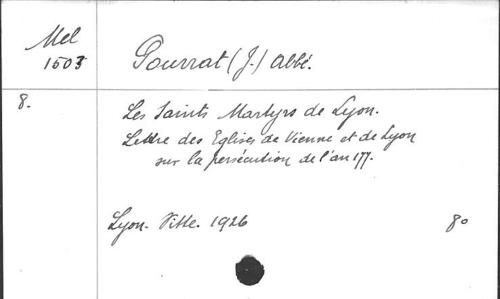 Mel
1503
Pourrat (J.) Abbé.
8.
Les Saints Martyrs de Lyon.
Lettre des Eglises de Vienne et de Lyon
sur la persécution de l'an 177.
Lyon. Vitte. 1926
8°